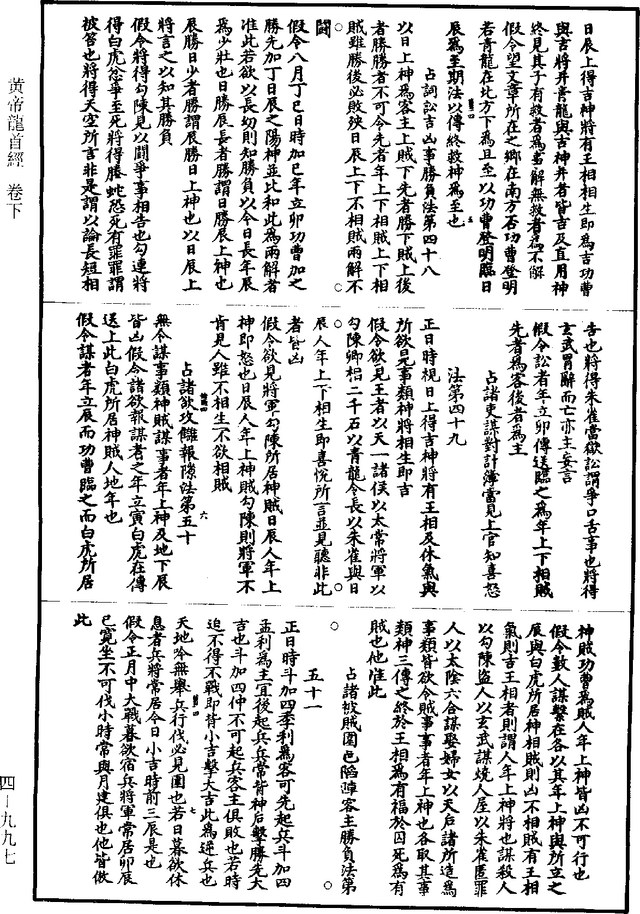 黃帝龍首經 卷下
四-九九七
日辰上得吉神將有王相相生即爲吉功曹
與吉將并青龍與吉神并者皆吉及直用神
終見其子有救者爲憂解無救者爲不解
假令望文章所在之鄉在南方石功曹登明
若青龍在北方下爲且至以功曹登明臨日
辰爲至期法以傳終救神爲至也
占詞訟吉凶事勝負法第四十八
以日上神爲客主上賊下先者勝下賊上後
者勝勝者不可令先者年上下相賊上下相
賊雖勝後必敗殃日辰上下不相賊兩解不
鬭
假令八月丁巳日時加巳年立卯功曹加之
勝先加丁日辰之陽神並比和此爲兩解者
准此若欲以長幼則知勝負以今日長年辰
爲少壯也日勝辰長者勝謂日勝辰上神也
辰勝日少者勝謂辰勝日上神也以日辰上
將言之以知其勝負
假令將得勾陳見以鬪爭事相告也勾連將
得白虎忿爭至死將得螣蛇恐死有罪罪謂
被笞也將得天空所言非是謂以論長短相
告也將得朱雀當獄訟謂爭口舌事也將得
玄武胃辭而亡亦主妄言
假令訟者年立卯傳送臨之爲年上下相賊
先者爲客後者爲主
占諸吏謀對計簿當見上官知喜怒
法第四十九
正日時視日上得吉神將有王相及休氣與
所欲見事類神將相生即吉
假令欲見王者以天一諸侯以太常將軍以
勾陳卿相二千石以青龍令長以朱雀與日
辰人年上下相生即喜悅所言並見聽非此
者皆凶
假令欲見將軍勾陳所居神賊日辰人年上
神即怒也日辰人年上神賊勾陳則將軍不
肯見人雖不相生不欲相賊
占諸欲攻讎報隙法第五十
無令謀事類神賊謀事者年上神及地下辰
皆凶假令諸欲報謀者之年立寅白虎在傳
送上此白虎所居神賊人地年也
假令謀者年立辰而功曹臨之而白虎所居
神賊功曹爲賊人年上神皆凶不可行也
假令數人謀繫在各以其年上神與所立之
辰與白虎所居神相賊則凶不相賊有王相
氣則吉王相者則謂人年上神將也謀殺人
以勾陳盜人以玄武謀燒人屋以朱雀匿罪
人以太陰六合謀娶婦女以天后諸所造爲
事類皆欲令賊事事者年上神也各取其事
類神三傳之終於王相爲有福於囚死爲有
賊也他准此
占諸被賊圍邑陷陣客主勝負法第
五十一
正日時斗加四季利爲客可先起兵斗加四
孟利爲主宜後起兵兵常背神后擊勝先大
吉也斗加四仲不可起兵客主俱敗也若時
迫不得不戰即背小吉擊大吉此爲逆兵也
天地吟無舉兵行伐必見圍也若日暮欲休
息者兵將常居今日小吉時前三辰是也
假令正月中大戰暮欲宿兵將軍常居卯辰
巳寬坐不可伐小時常與月建俱也他皆倣
此